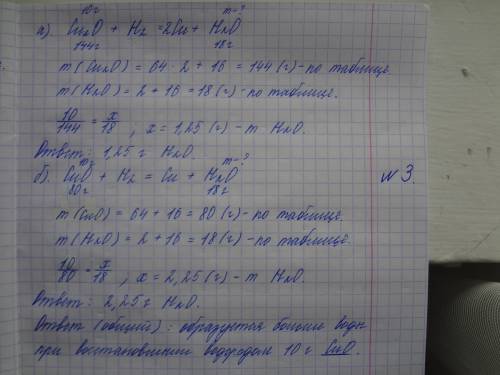 10г m-?
а) Cu₂O + H₂ = 2Cu + H₂O
144г 18г
m(Cu₂O) = 64 · 2 + 16 = 144 (г) - по таблице
m(H₂O) = 2 + 16 = 18 (г) - по таблице.
10/144 = x/18 , x = 1,25 (г) - m H₂O.
Ответ: 1,25 г H₂O.
10г m-?
б). CuO + H₂ = Cu + H₂O
80г 18г
№3.
m(CuO) = 64 + 16 = 80 (г) - по таблице.
m(H₂O) = 2 + 16 = 18 (г) - по таблице.
10/80 = x/18 , x = 2,25 (г) - m H₂O.
Ответ: 2,25 г H₂O.
Ответ (общий): образуется больше воды
при восстановлении водородом 10 г CuO.